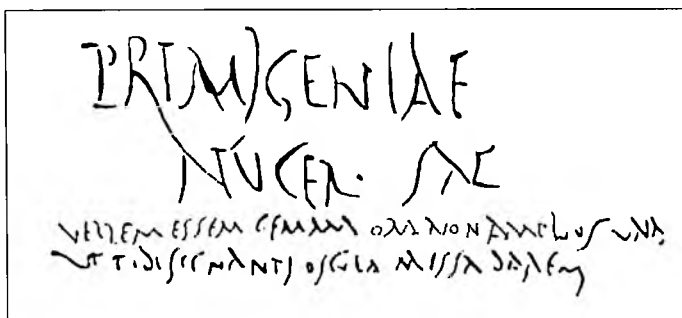 PRIMIGENIAE
NUCER. SAL
VELLEM ESSEM GEMMA ORA NON AMPLIUS UNA
UT TIBI SIGNANTI OSCULA MISSA DAREM